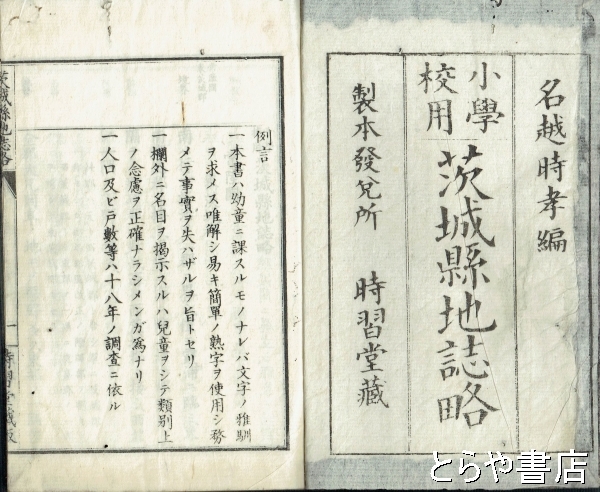 名越時孝編
小學校用
茨城縣地誌略
製本發兌所 時習堂藏
例言
一本書ハ幼童ニ課スルモノナレバ文字ノ雅馴
ヲ求メス唯解シ易キ簡單ノ熟字ヲ使用シ務
メテ事實ヲ失ハザルヲ旨トセリ
一欄外ニ名目ヲ揭示スルハ兒童ヲシテ類別上
ノ念慮ヲ正確ナラシメンガ為ナリ
一人口及ビ戸數等ハ十八年ノ調査ニ依ル
茨城縣地誌略
一
時習堂藏版
とらや書店